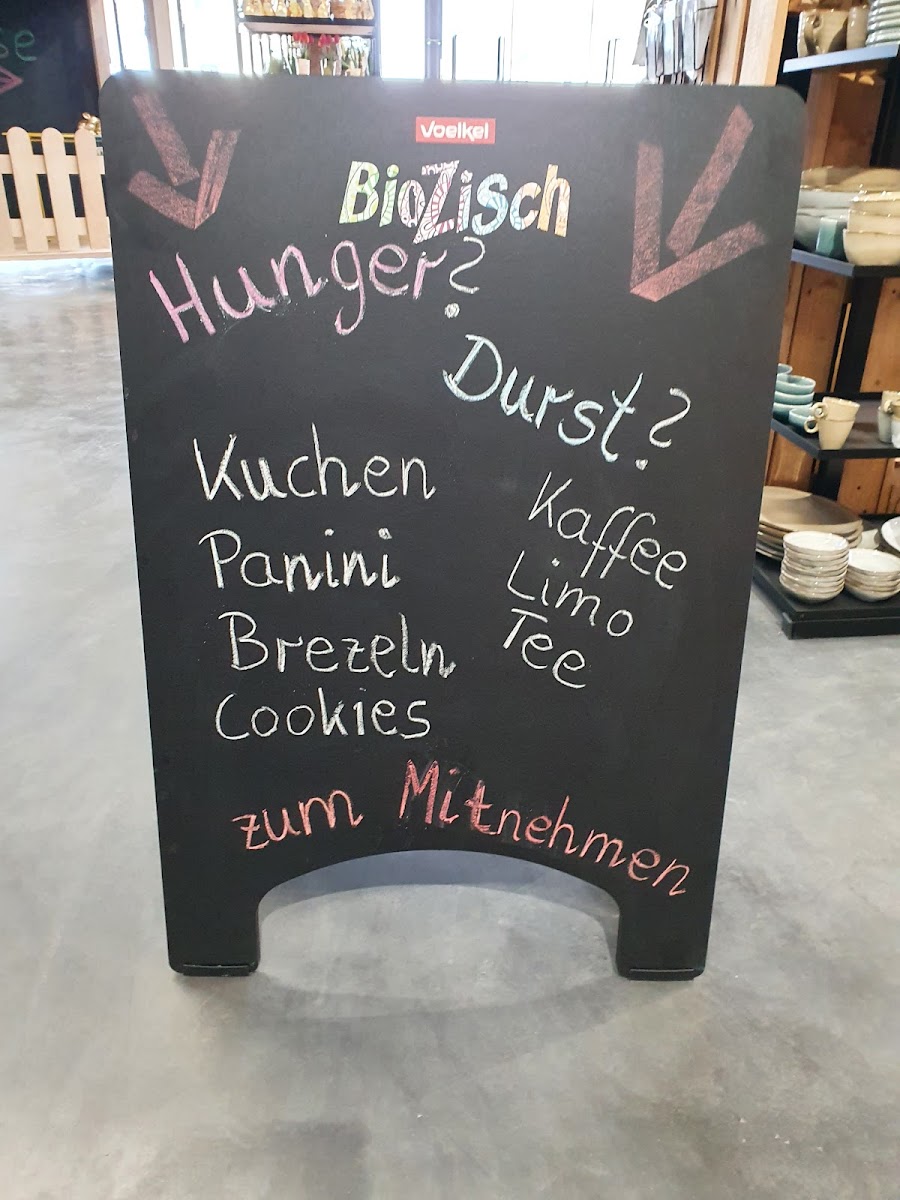 Voelkel
BioZisch
Hunger?
Durst?
Kuchen
Panini
Brezeln
Cookies
Kaffee
Limo
Tee
zum Mitnehmen